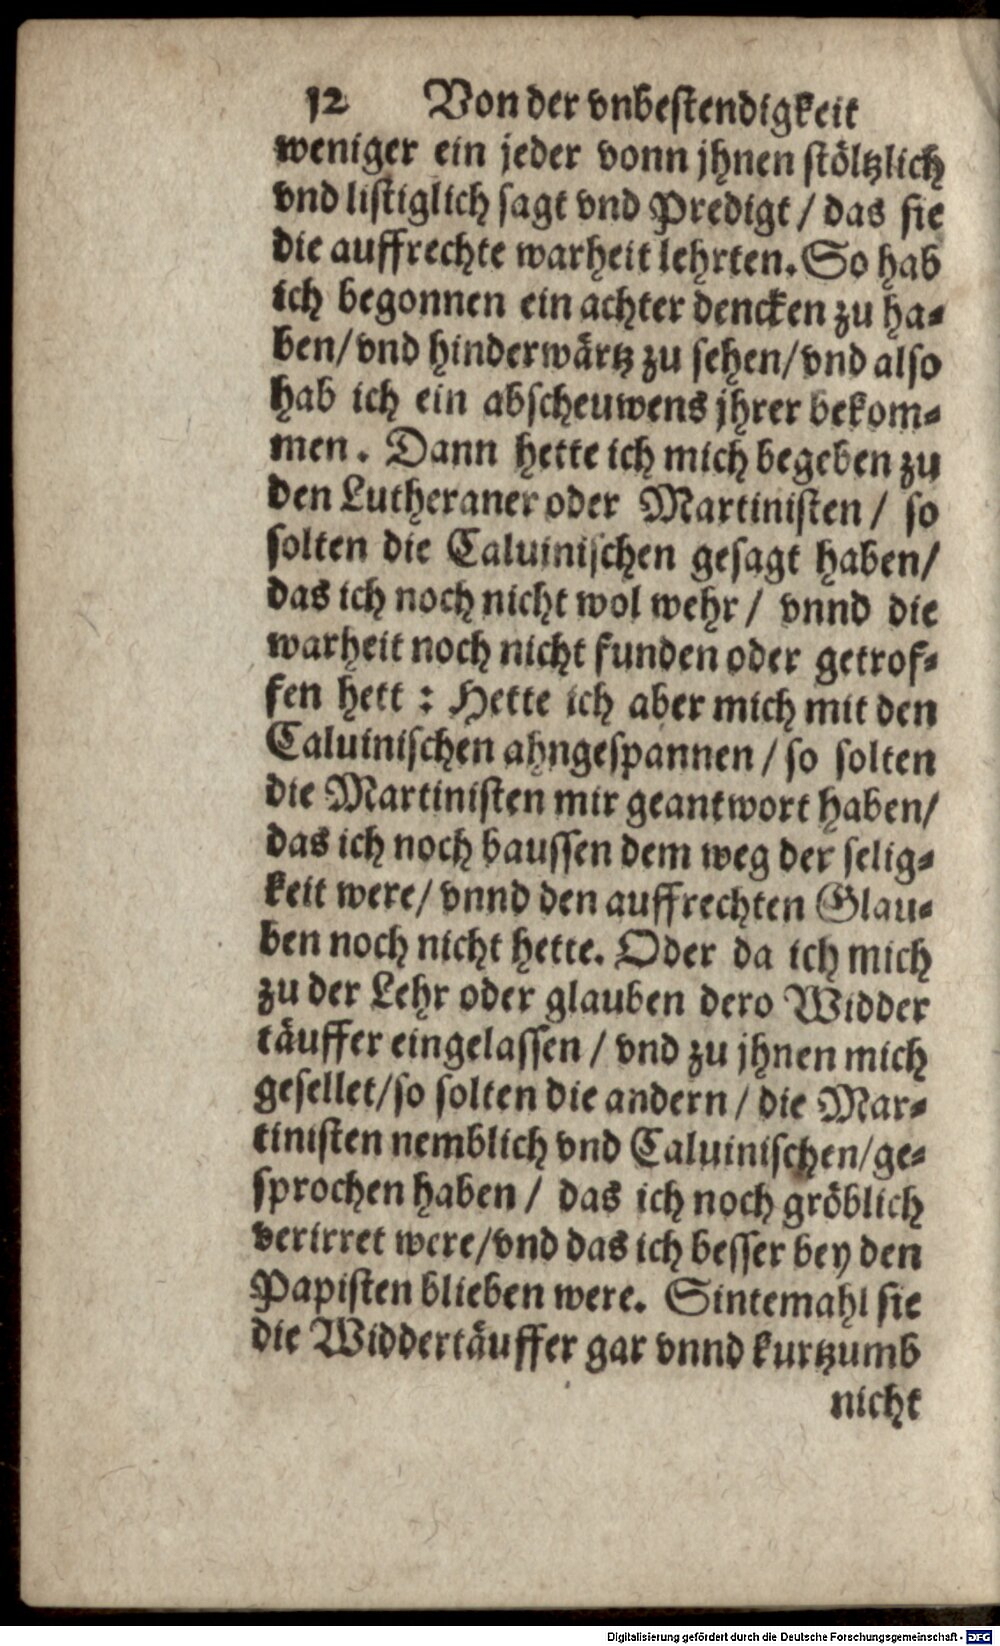 12 Von der vnbestendigkeit
weniger ein jeder vonn jhnen stöltzlich
vnd listiglich sagt vnd Predigt / das sie
die auffrechte warheit lehrten. So hab
ich begonnen ein achter dencken zu ha-
ben/ vnd hinderwärtz zu sehen/ vnd also
hab ich ein abscheuwens jhrer bekom-
men. Dann hette ich mich begeben zu
den Lutheraner oder Martinisten / so
solten die Caluinischen gesagt haben/
das ich noch nicht wol wehr / vnnd die
warheit noch nicht funden oder getrof-
fen hett : Hette ich aber mich mit den
Caluinischen ahngespannen / so solten
die Martinisten mir geantwort haben/
das ich noch baussen dem weg der selig-
keit were/ vnnd den auffrechten Glau-
ben noch nicht hette. Oder da ich mich
zu der Lehr oder glauben dero Widder
täuffer eingelassen / vnd zu jhnen mich
gesellet/ so solten die andern / die Mar-
tinisten nemblich vnd Caluinischen/ ge-
sprochen haben / das ich noch gröblich
verirret were/ vnd das ich besser bey den
Papisten blieben were. Sintemahl sie
die Widdertäuffer gar vnnd kurtzumb
nicht
Digitalisierung gefördert durch die Deutsche Forschungsgemeinschaft - DFG